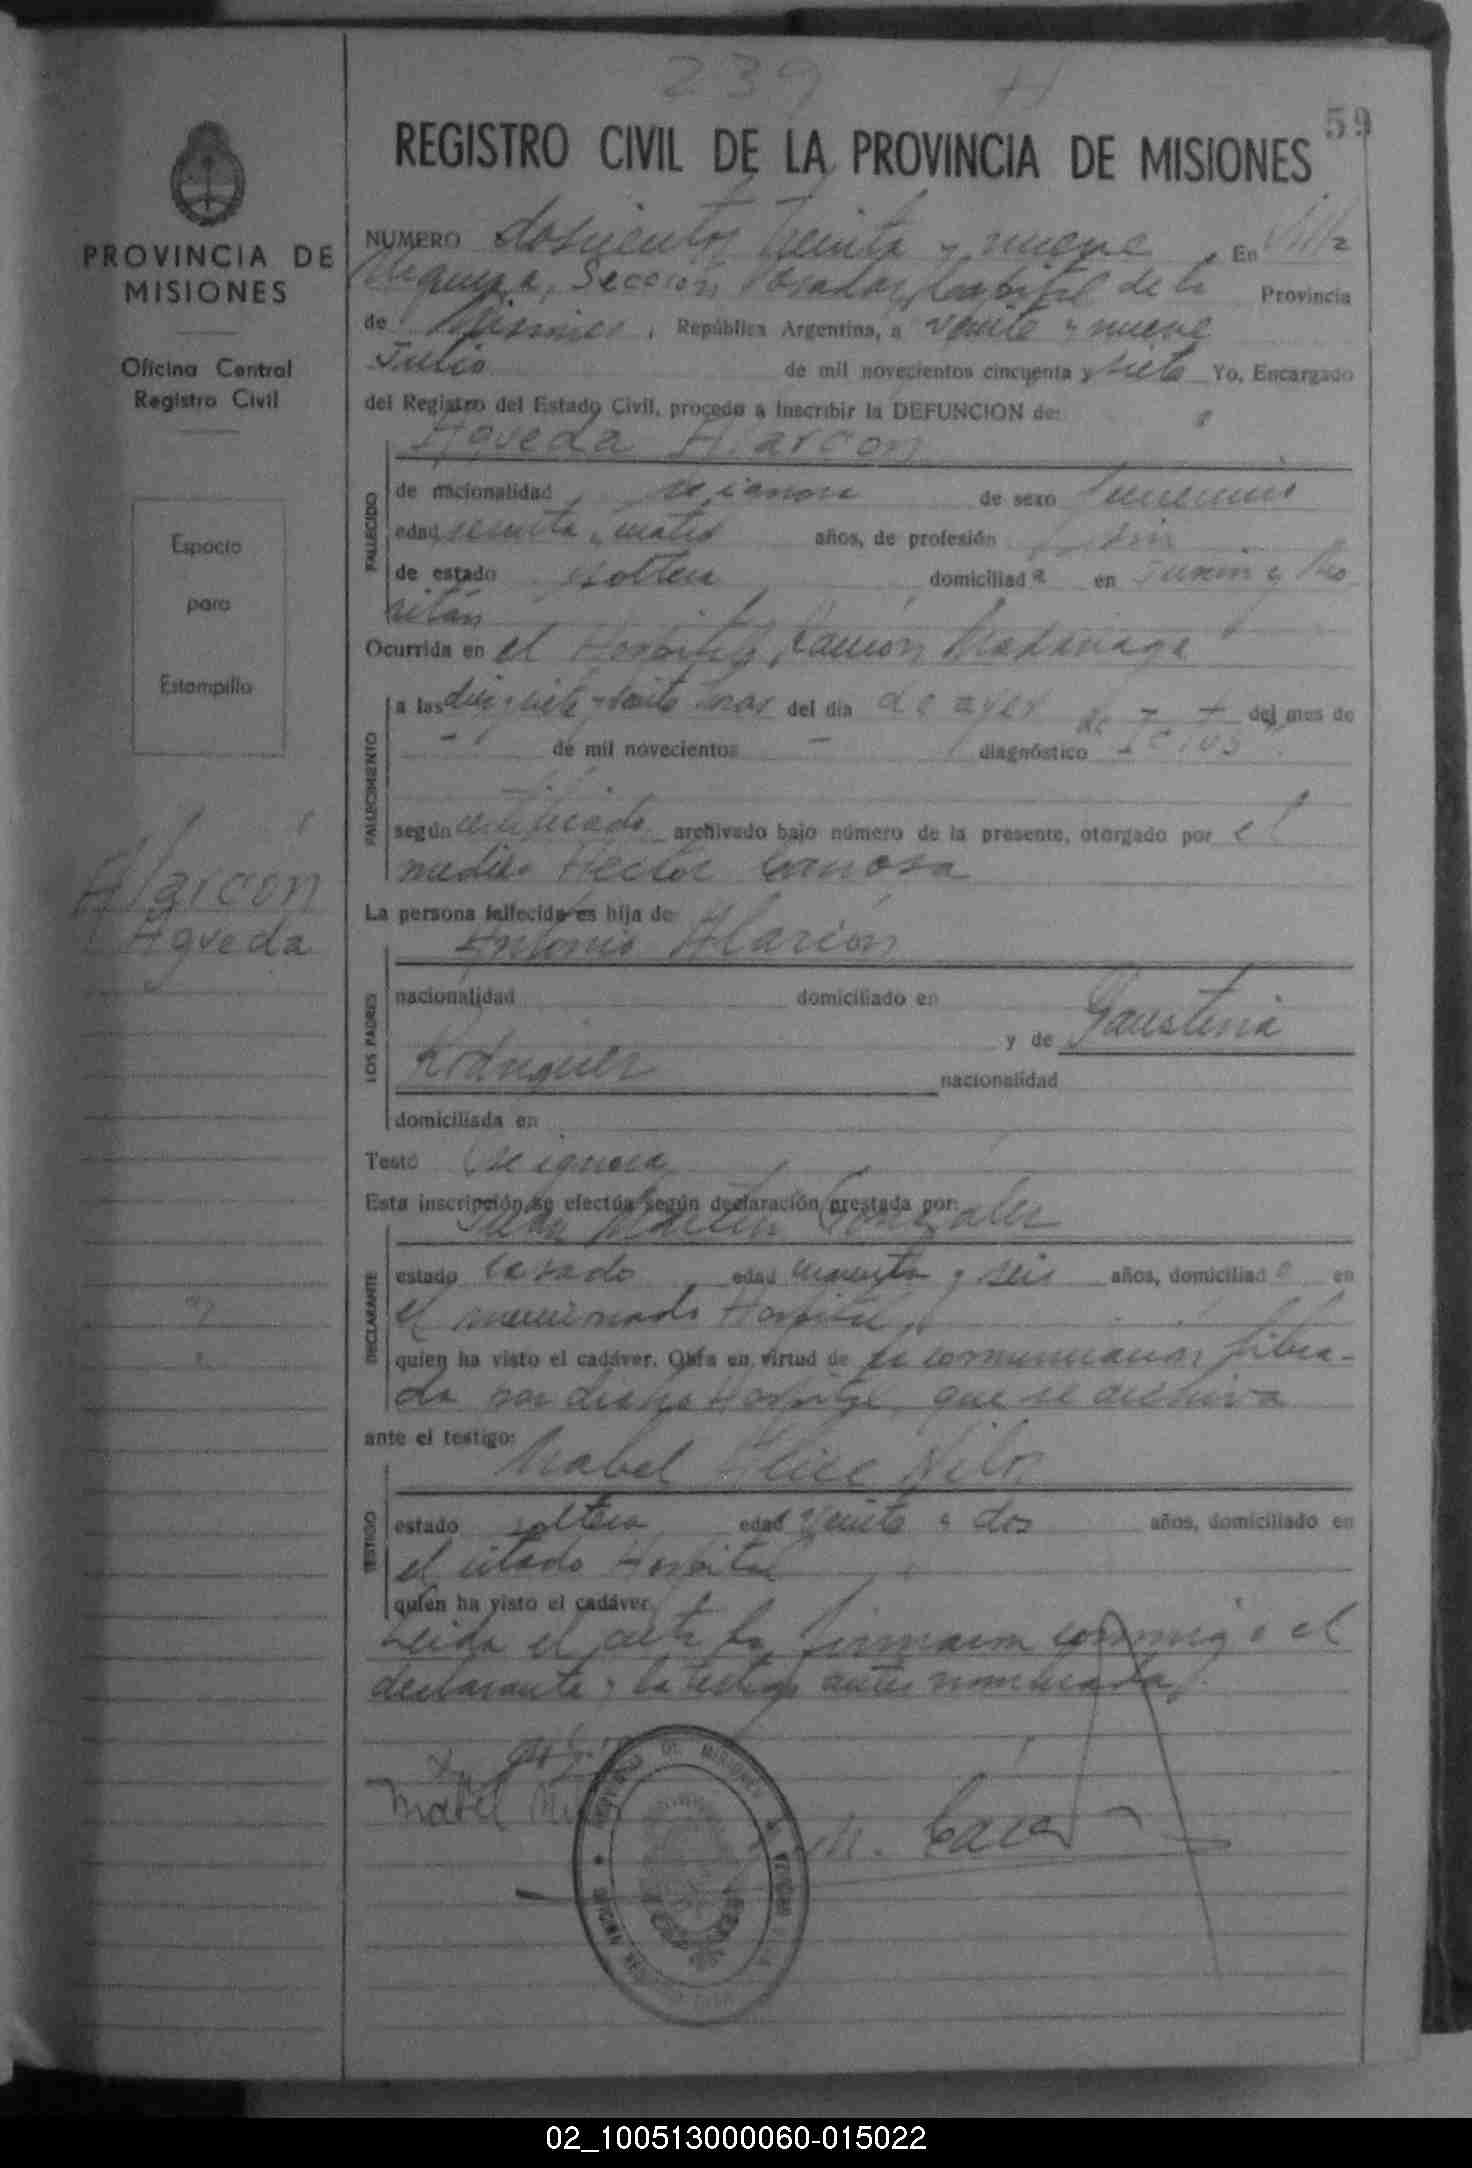 239 H
59
REGISTRO CIVIL DE LA PROVINCIA DE MISIONES
PROVINCIA DE
MISIONES
Oficina Central
Registro Civil
Espacio
para
Estampilla
Alarcón
Agueda
NUMERO doscientos treinta y nueve En Villa
Urquiza, Sección Posadas, Capital de la Provincia
de Misiones, República Argentina, a veinte y nueve
Julio de mil novecientos cincuenta y siete Yo, Encargado
del Registro del Estado Civil, procedo a inscribir la DEFUNCION de:
Agueda Alarcón
FALLECIDO
de nacionalidad de sexo femenino
edad años, de profesión
de estado soltera domiciliada en Junín y
Ocurrida en el Hospital Ramón Madariaga
FALLECIMIENTO
a las diez y siete y veinte horas del día de ayer del mes de
de mil novecientos - diagnóstico Ictus
según certificado archivado bajo número de la presente, otorgado por el
medico Hector
La persona fallecida es hija de
Antonio Alarcón
LOS PADRES
nacionalidad domiciliado en
y de Faustina
Rodriguez nacionalidad
domiciliada en
Testó se ignora
Esta inscripción se efectúa según declaración prestada por:
Juan Martin Gonzalez
DECLARANTE
estado casado edad y seis años, domiciliado en
el mencionado Hospital
quien ha visto el cadáver. Obra en virtud de la comunicación libra-
da por dicho Hospital, que se archiva
ante el testigo:
Mabel Nilo
TESTIGO
estado soltera edad veinte y dos años, domiciliado en
el citado Hospital
quién ha visto el cadáver.
Leida el acta la firmaron conmigo el
declarante y la testigo antes nombrada.
Mabel
PROVINCIA DE MISIONES
02_100513000060-015022